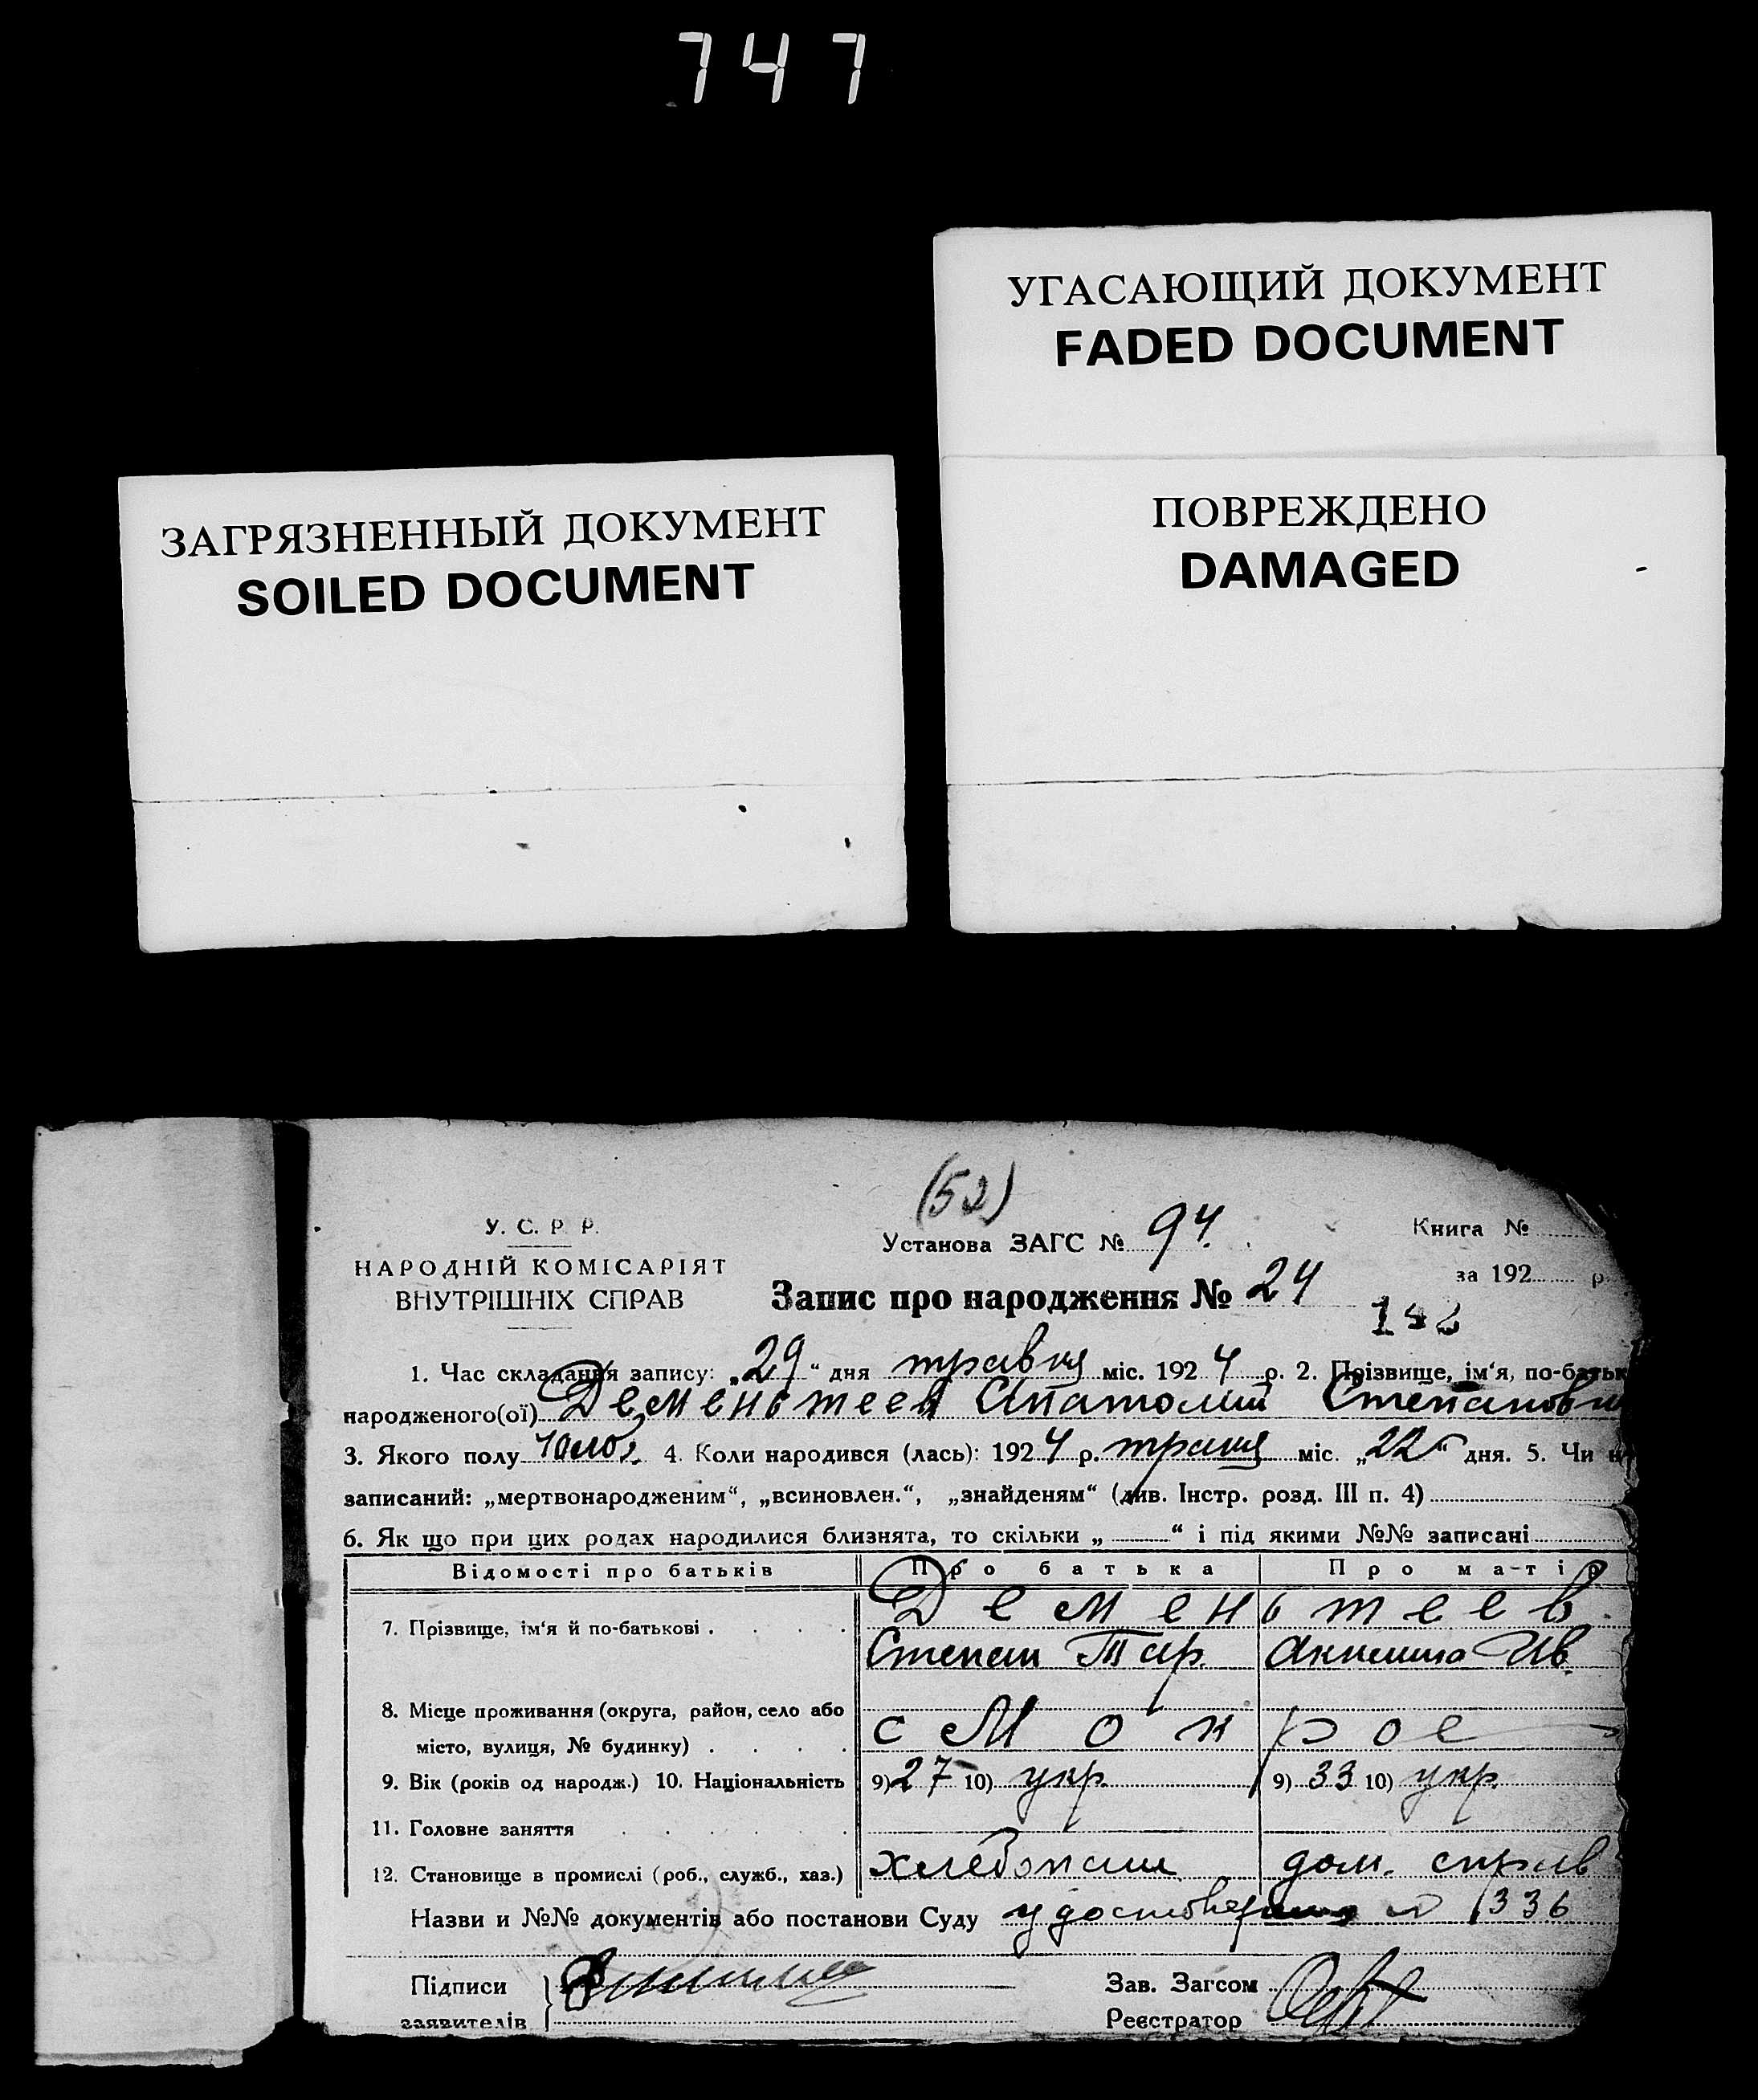 747
УГАСАЮЩИЙ ДОКУМЕНТ
FADED DOCUMENT
ЗАГРЯЗНЕННЫЙ ДОКУМЕНТ
SOILED DOCUMENT
ПОВРЕЖДЕНО
DAMAGED
(52)
У. С. Р. Р.
НАРОДНІЙ КОМІСАРІЯТ
ВНУТРІШНІХ СПРАВ
Установа ЗАГС № 94.
Запис про народження № 24
Книга №
за 192 р
142
1. Час складання запису: „29“ дня травня міс. 1924 р. 2. Прізвище, ім‘я, по-батьк
народженого(ої) Дементеев Анатолий Степанови
3. Якого полу чолов. 4. Коли народився (лась): 1924 р. травня міс. „22“ дня. 5. Чи н
записаний: „мертвонародженим“, „всиновлен.“, „знайденям“ (див. Інстр. розд. III п. 4)
6. Як що при цих родах народилися близнята, то скільки „ “ і під якими №№ записані
Відомості про батьків Про батька Про матір
7. Прізвище, ім‘я й по-батькові . Дементеев.
Степан Тар. Ив.
8. Місце проживання (округа, район, село або
місто, вулиця, № будинку) . с Мокрое
9. Вік (років од народж.) 10. Національність 9) 27 10) укр. 9) 33 10) укр.
11. Головне заняття
12. Становище в промислі (роб., служб., хаз.) хлебопаш дом. справ
Назви и №№ документів або постанови Суду 1336
Підписи
заявителів
Зав. Загсом
Реєстратор